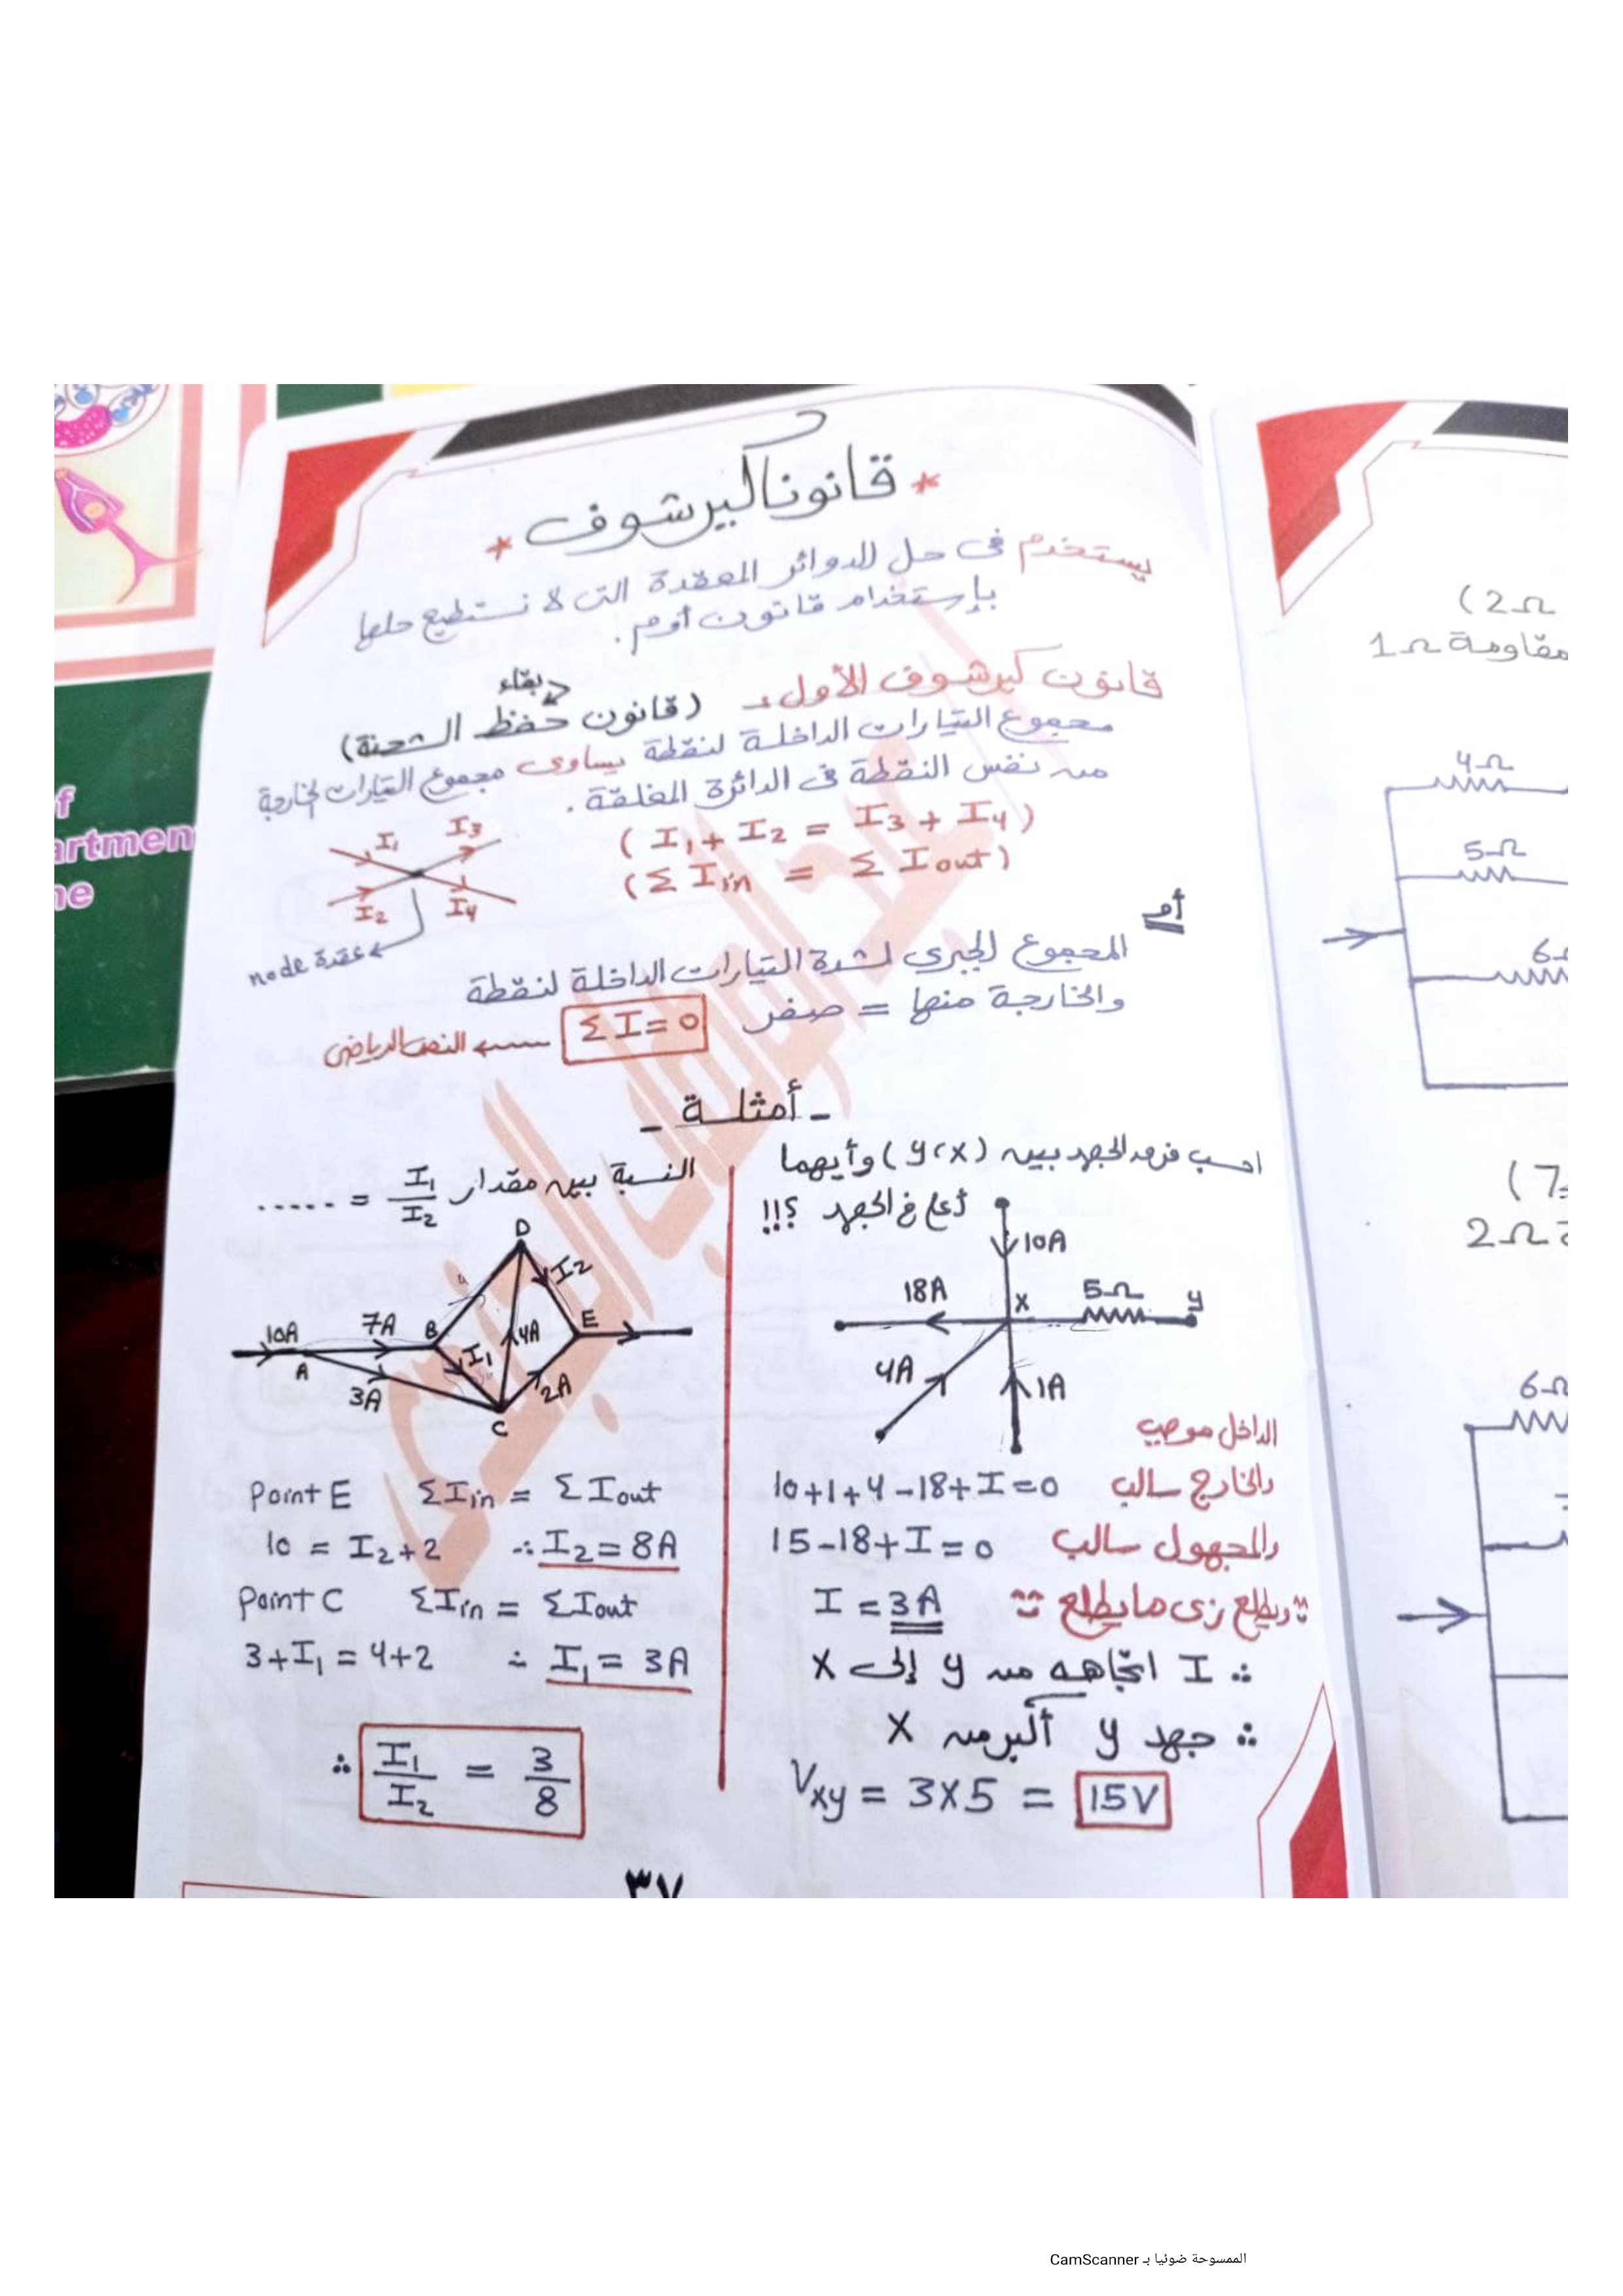 * قانونا كيرشوف *
يستخدم فى حل الدوائر المعقدة التى لا نستطيع حلها
بإستخدام قانون أوم .
قانون كيرشوف الأول :- (قانون حفظ الشحنة)
بقاء
مجموع التيارات الداخلة لنقطة يساوى مجموع التيارات الخارجة
من نفس النقطة فى الدائرة المغلقة .
( I₁ + I₂ = I₃ + I₄ )
(Σ Iin = Σ Iout)
I₁
I₃
I₂
I₄
node عقدة
أو
المجموع الجبرى لشدة التيارات الداخلة لنقطة
والخارجة منها = صفر
Σ I = 0
النص الرياضى
- أمثلة -
احسب فرق الجهد بين (x، y) وأيهما
أعلى فى الجهد ؟!!
10A
18A
x
5Ω
y
4A
1A
الداخل موجب
والخارج سالب
10+1+4-18+I=0
والمجهول سالب
15-18+I=0
ويطلع زى ما يطلع
I = 3A
∴ I اتجاهه من y إلى x
∴ جهد y أكبر من x
Vxy = 3×5 = 15V
النسبة بين مقدار I₁/I₂ = .....
D
I₂
10A
7A
B
4A
E
A
I₁
3A
2A
C
Point E ΣIin = ΣIout
10 = I₂+2 ∴ I₂ = 8A
Point C ΣIin = ΣIout
3+I₁ = 4+2 ∴ I₁ = 3A
∴ I₁/I₂ = 3/8
٣٧
(2Ω
مقاومة 1Ω
4Ω
5Ω
(7
2Ω
الممسوحة ضوئيا بـ CamScanner